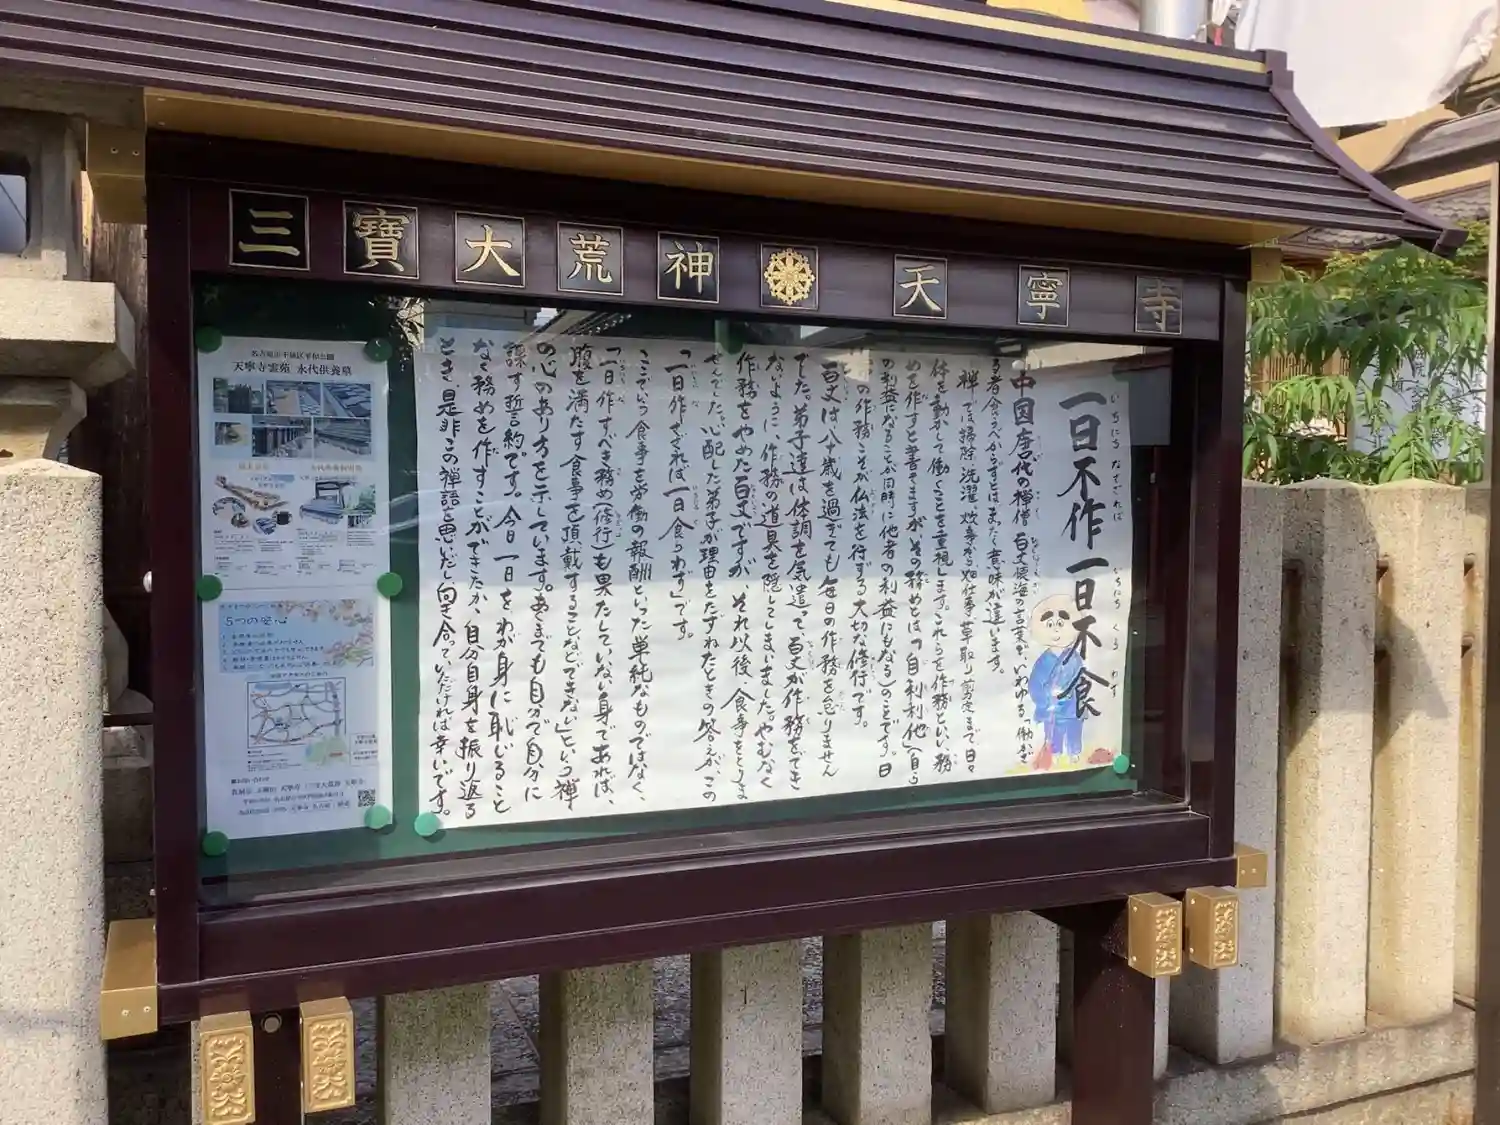 三寶大荒神 天寧寺
一日不作一日不食
いちにち なさざれば いちにち くらわず
中国唐代の禅僧 百丈懐海の言葉で、いわゆる「働かざ
る者食うべからず」とはまったく意味が違います。
禅では掃除、洗濯、炊事から畑仕事、草取り、剪定まで日々
体を動かして働くことを重視します。これらを作務といい、務
めを作すと書きますが、その務めとは「自利利他」(自ら
の利益になることが同時に他者の利益にもなる)のことです。日
の作務こそが仏法を行ずる大切な修行です。
百丈は八十歳を過ぎても毎日の作務を怠りません
でした。弟子達は体調を気遣って百丈が作務をでき
ないように、作務の道具を隠してしまいました。やむなく
作務をやめた百丈ですが、それ以後、食事をとりま
せんでした。心配した弟子が理由をたずねたときの答えが、この
「一日作さざれば一日食らわず」です。
ここでいう食事を労働の報酬といった単純なものではなく、
「一日作すべき務め(修行)も果たしていない身であれば、
腹を満たす食事を頂戴することなどできない」という禅
の心のあり方を示しています。あくまでも自分で自分に
課す誓約です。今日一日をわが身に恥じること
なく務めを作すことができたか、自分自身を振り返る
とき、是非この禅語を思いだし、向き合っていただければ幸いです。
名古屋市千種区平和公園
天寧寺霊苑 永代供養墓
5つの安心